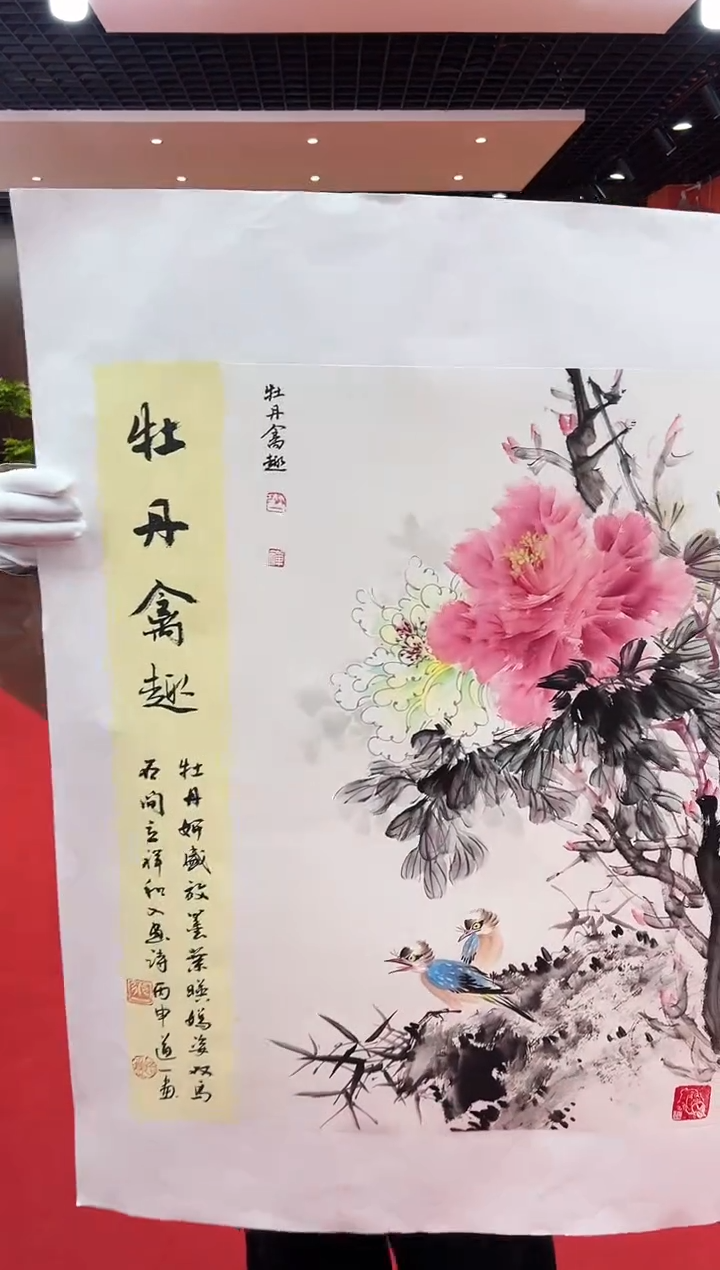 牡丹禽趣
牡丹妍盛放墨葉暎嫣姿双鸟
石间立祥和入画诗丙申道一画
牡丹禽趣